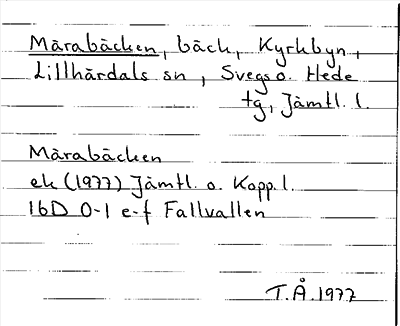 Mårabäcken, bäck, Kyrkbyn,
Lillhärdals sn, Svegs o. Hede
tg, Jämtl. l.
Mårabäcken
ek (1977) Jämtl. o. Kopp. l.
16D 0-1 e-f Fallvallen
T.Å. 1977